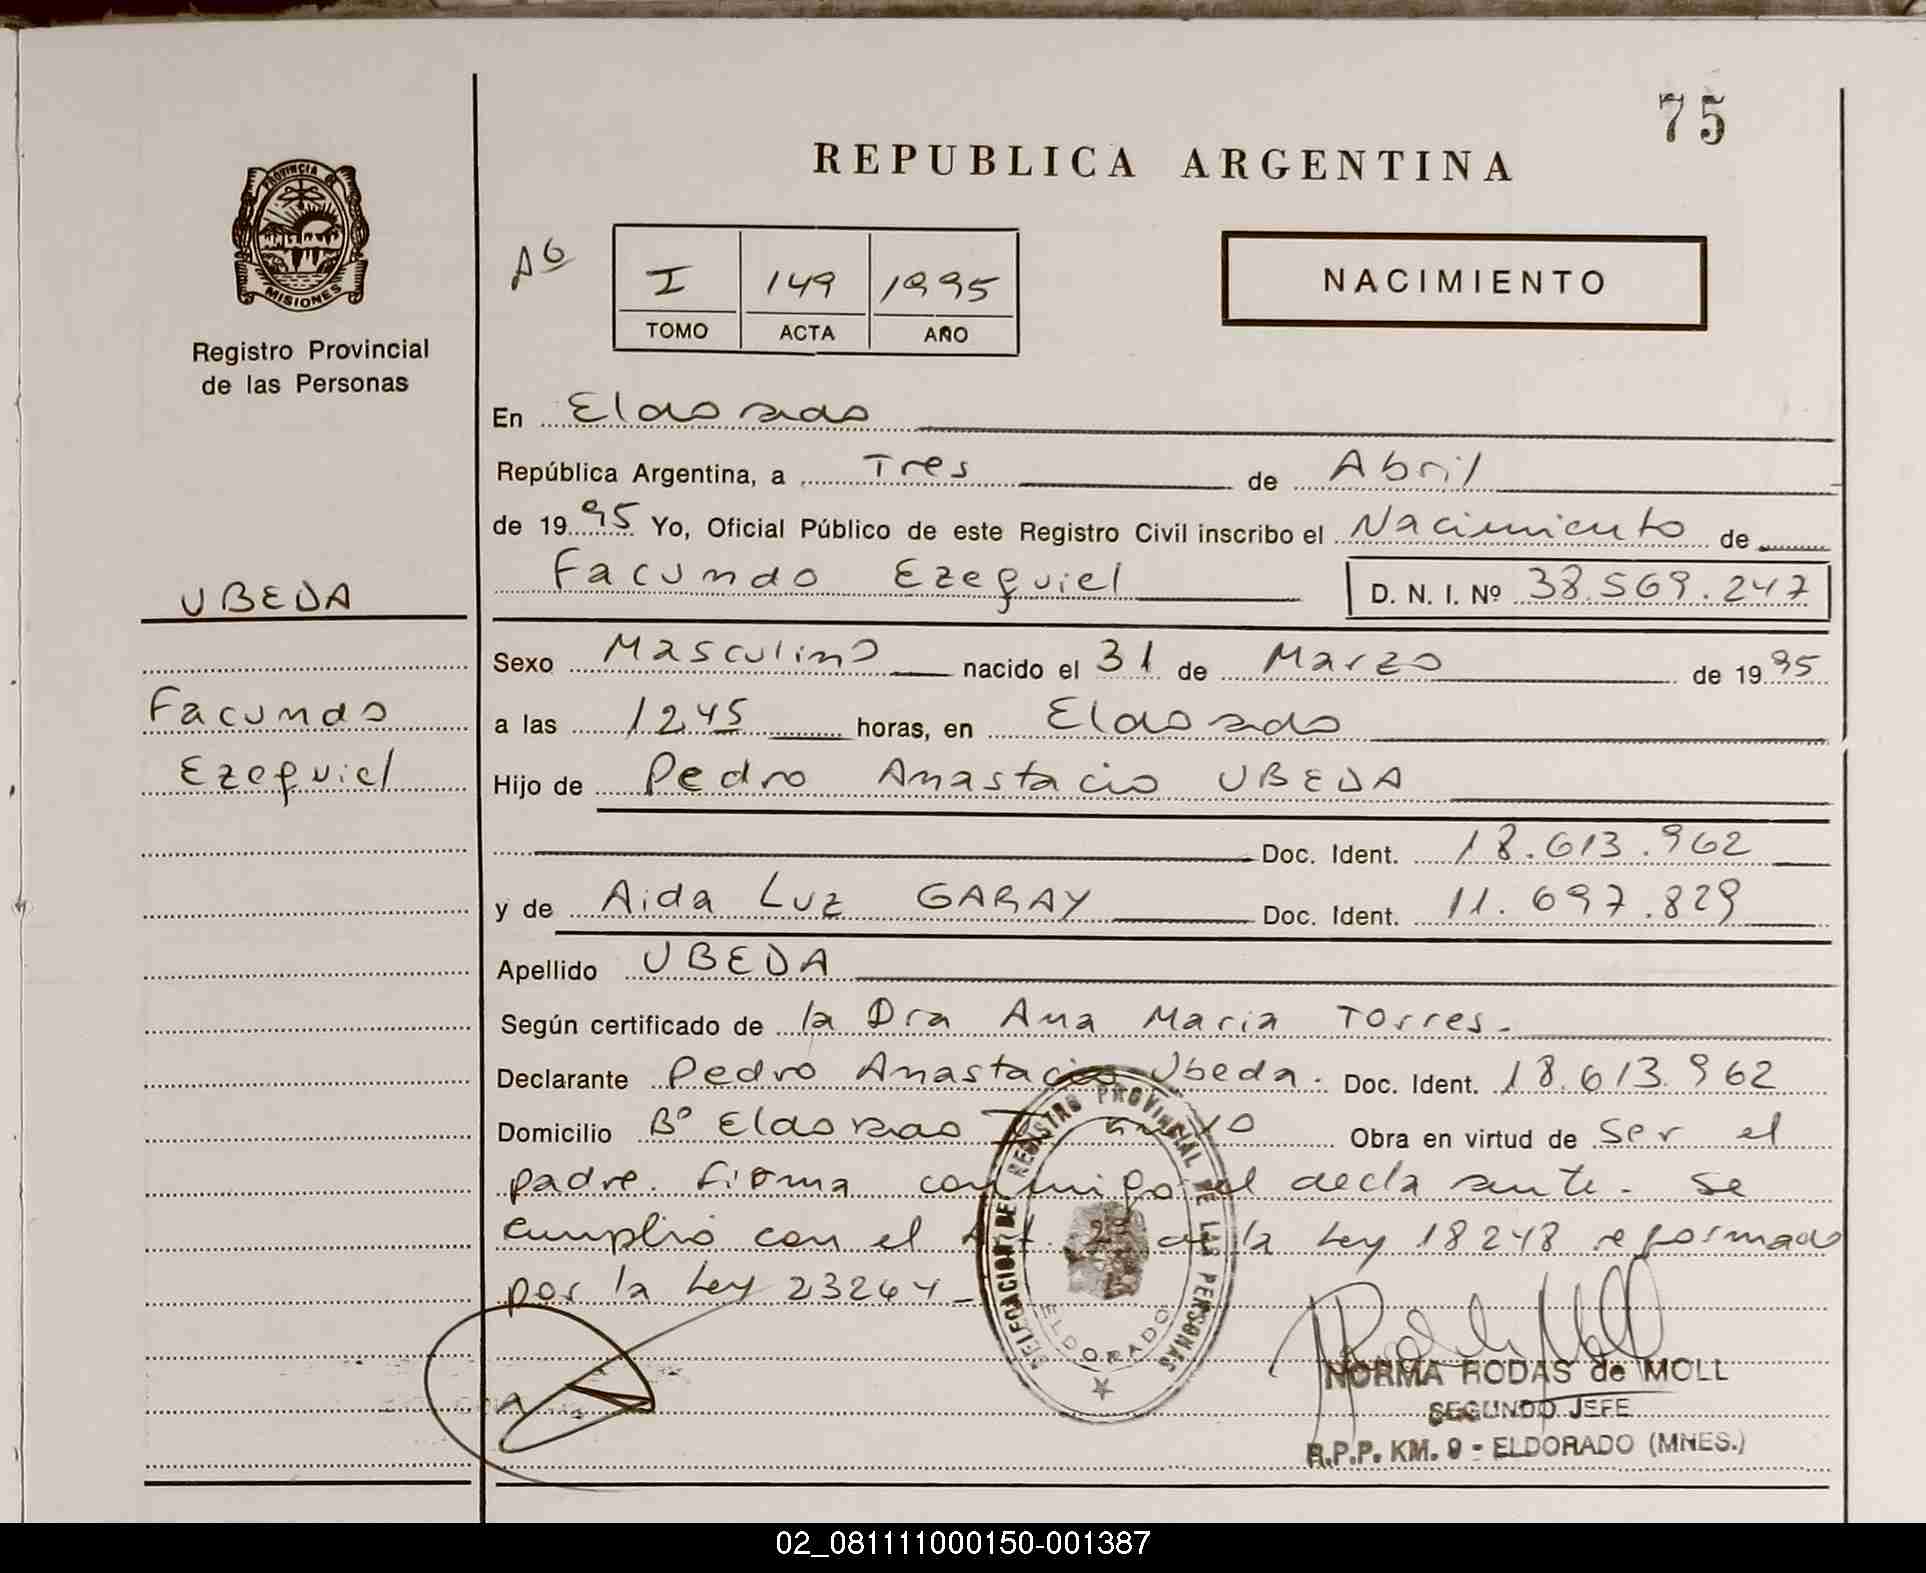 75
REPUBLICA ARGENTINA
PROVINCIA DE
MISIONES
Registro Provincial
de las Personas
Aº
I 149 1995
TOMO ACTA AÑO
NACIMIENTO
En Eldorado
República Argentina, a Tres de Abril
de 1995 Yo, Oficial Público de este Registro Civil inscribo el Nacimiento de
Facundo Ezequiel D. N. I. Nº 38.569.247
UBEDA
Sexo Masculino nacido el 31 de Marzo de 1995
Facundo
a las 12,45 horas, en Eldorado
Ezequiel
Hijo de Pedro Anastacio UBEDA
Doc. Ident. 18.613.962
y de Aida Luz GARAY Doc. Ident. 11.697.829
Apellido UBEDA
Según certificado de la Dra Ana Maria Torres.
Declarante Pedro Anastacio Ubeda. Doc. Ident. 18.613.962
Domicilio Bº Eldorado 10 Obra en virtud de ser el
padre. Firma conmigo el declarante. Se
cumplió con el Art. de la Ley 18248 reformado
por la Ley 23264
DELEGACION DE REGISTRO PROVINCIAL DE LAS PERSONAS
ELDORADO
NORMA RODAS de MOLL
SEGUNDO JEFE
R.P.P. KM. 9 - ELDORADO (MNES.)
02_081111000150-001387